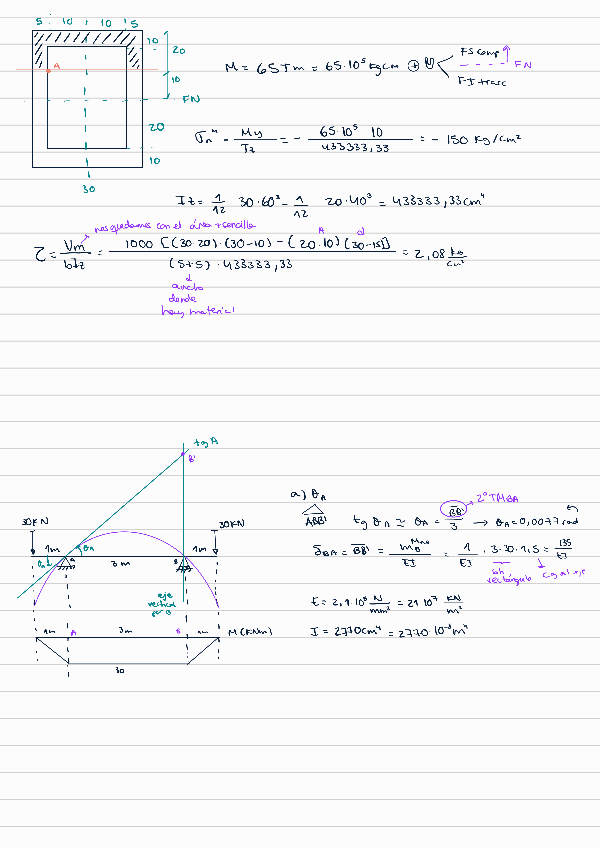 5 10 10 5
10
20
A
10
FN
20
10
30
M = 65Tm = 65·10⁵ kgcm ⊕
FS comp
FN
FI trac
σₙᴹ = My / Iz = − 65·10⁵ 10 / 433333,33 = − 150 kg/cm²
Iz = 1/12 30·60³ − 1/12 20·40³ = 433333,33 cm⁴
nos quedamos con el área + sencilla
A d
τ = Vm / bIz = 1000 [(30·20)·(30-10) − (20·10)(30-15)] / (5+5)·433333,33 = 2,08 kg/cm²
ancho
donde
hay material
tg A
B'
30KN 30KN
1m θA 1m
θA A 3m B
eje
vertical
por B
1m A 3m B 1m M(KNm)
30
a) θA
ABB'
tg θA ≃ θA = BB' / 3 → θA = 0,0077 rad
2º TMBA
δBA = BB' = 1/EI · 3·30·1,5 = 135/EI
rectángulo
cg al eje
E = 2,1·10⁵ N/mm² = 21·10⁷ KN/m²
I = 2770cm⁴ = 2770·10⁻⁸m⁴